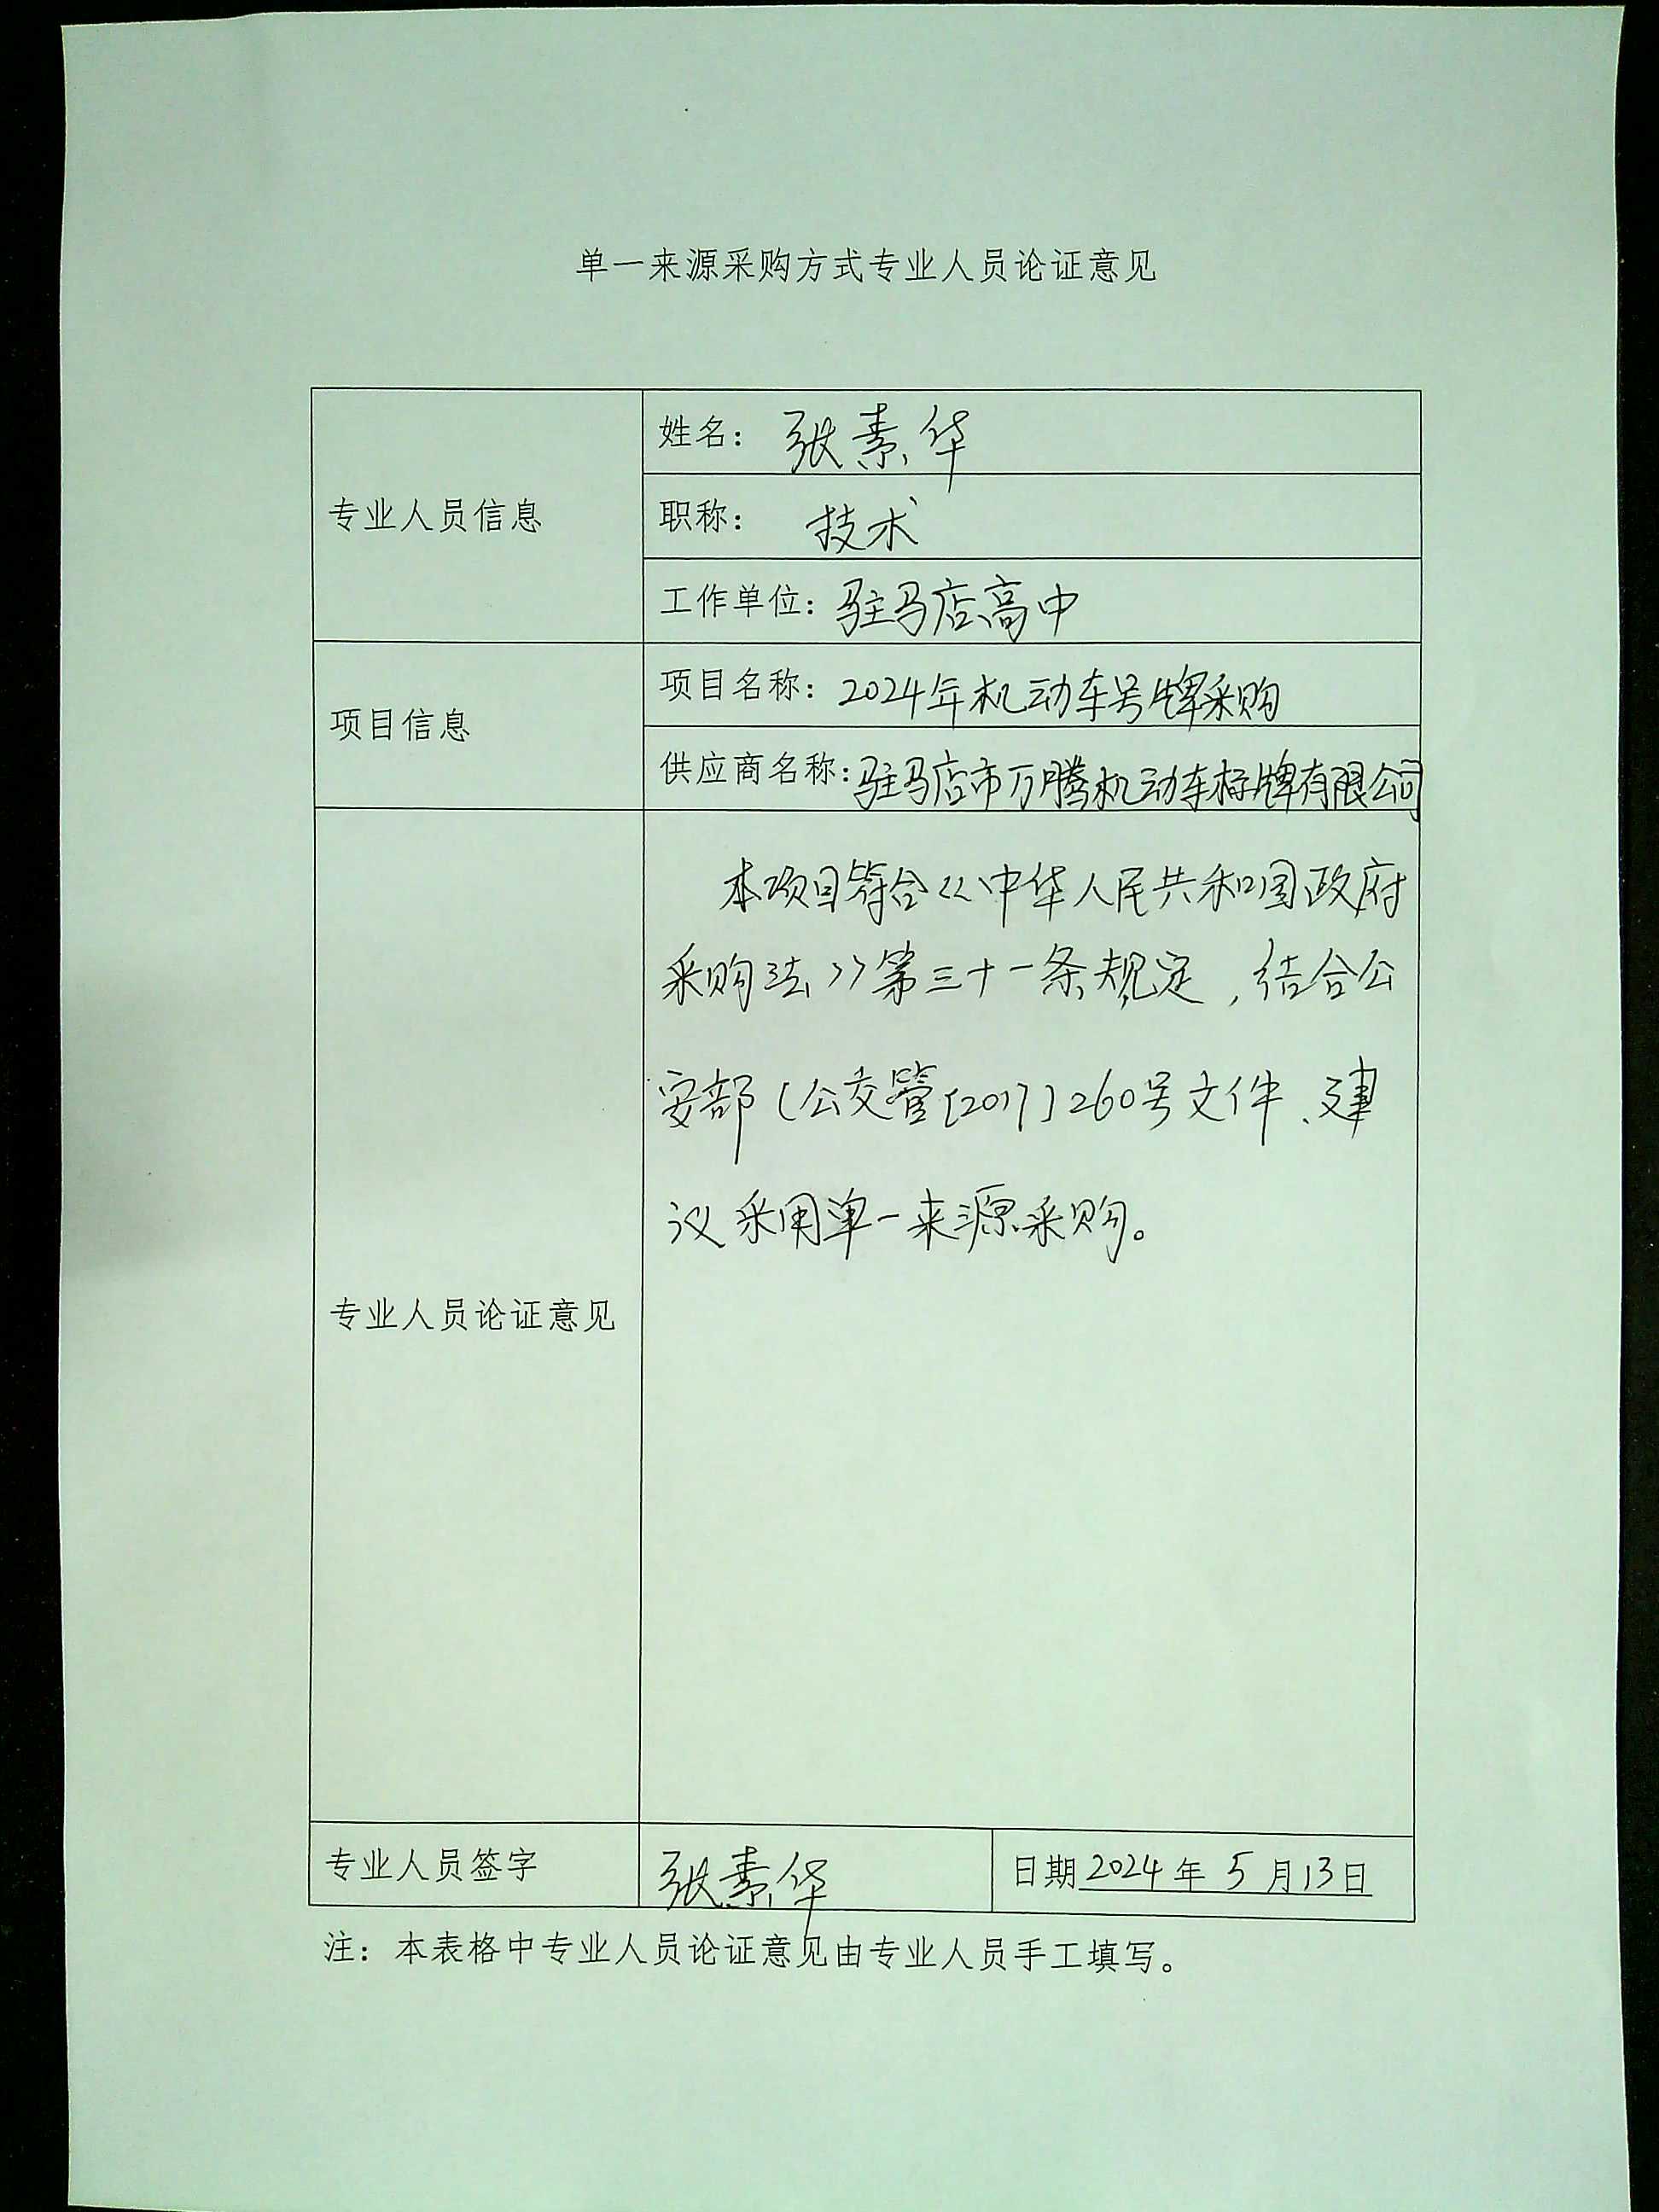 单一来源采购方式专业人员论证意见
专业人员信息
姓名：张素华
职称：技术
工作单位：驻马店高中
项目信息
项目名称：2024年机动车号牌采购
供应商名称：驻马店市万腾机动车标牌有限公司
专业人员论证意见
本项目符合《中华人民共和国政府
采购法》第三十一条规定，结合公
安部（公交管[2017]260号文件、建
议采用单一来源采购。
专业人员签字
张素华
日期2024年5月13日
注：本表格中专业人员论证意见由专业人员手工填写。